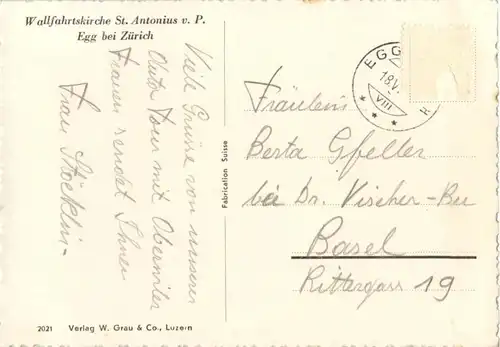 Wallfahrtskirche St. Antonius v. P.
Egg bei Zürich
Viele Grüsse von unserer
Auto Tour mit Oberwiler
Frauen sendet Ihnen
Frau Stöcklin-
Fabrication Suisse
EGG
18.V
VIII
Fräulein
Berta Gfeller
bei Dr. Vischer-Bu
Basel
Rittergass 19
2021 Verlag W. Grau & Co., Luzern